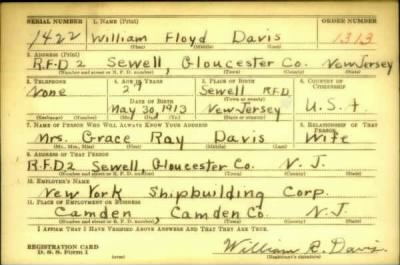 SERIAL NUMBER 1. NAME (Print) ORDER NUMBER
1422 William Floyd Davis 1313
(First) (Middle) (Last)
2. ADDRESS (Print)
R.F.D 2 Sewell, Gloucester Co. New Jersey
(Number and street or R. F. D. number) (Town) (County) (State)
3. TELEPHONE 4. AGE IN YEARS 5. PLACE OF BIRTH 6. COUNTRY OF CITIZENSHIP
None 27 Sewell R.F.D
(Town or county)
DATE OF BIRTH
May 30, 1913 New Jersey U.S.A.
(Mo.) (Day) (Yr.) (State or country)
7. NAME OF PERSON WHO WILL ALWAYS KNOW YOUR ADDRESS 8. RELATIONSHIP OF THAT PERSON
Mrs. Grace Ray Davis Wife
(Mr., Mrs., Miss) (First) (Middle) (Last)
9. ADDRESS OF THAT PERSON
R.F.D 2 Sewell, Gloucester Co. N. J.
(Number and street or R. F. D. number) (Town) (County) (State)
10. EMPLOYER'S NAME
New York Shipbuilding Corp.
11. PLACE OF EMPLOYMENT OR BUSINESS
Camden, Camden Co. N. J.
(Number and street or R. F. D. number) (Town) (County) (State)
I AFFIRM THAT I HAVE VERIFIED ABOVE ANSWERS AND THAT THEY ARE TRUE.
REGISTRATION CARD
D. S. S. Form 1 William Davis
(Registrant's signature)